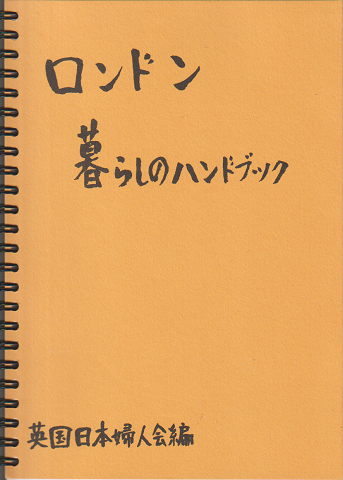 ロンドン
暮らしのハンドブック
英国日本婦人会編